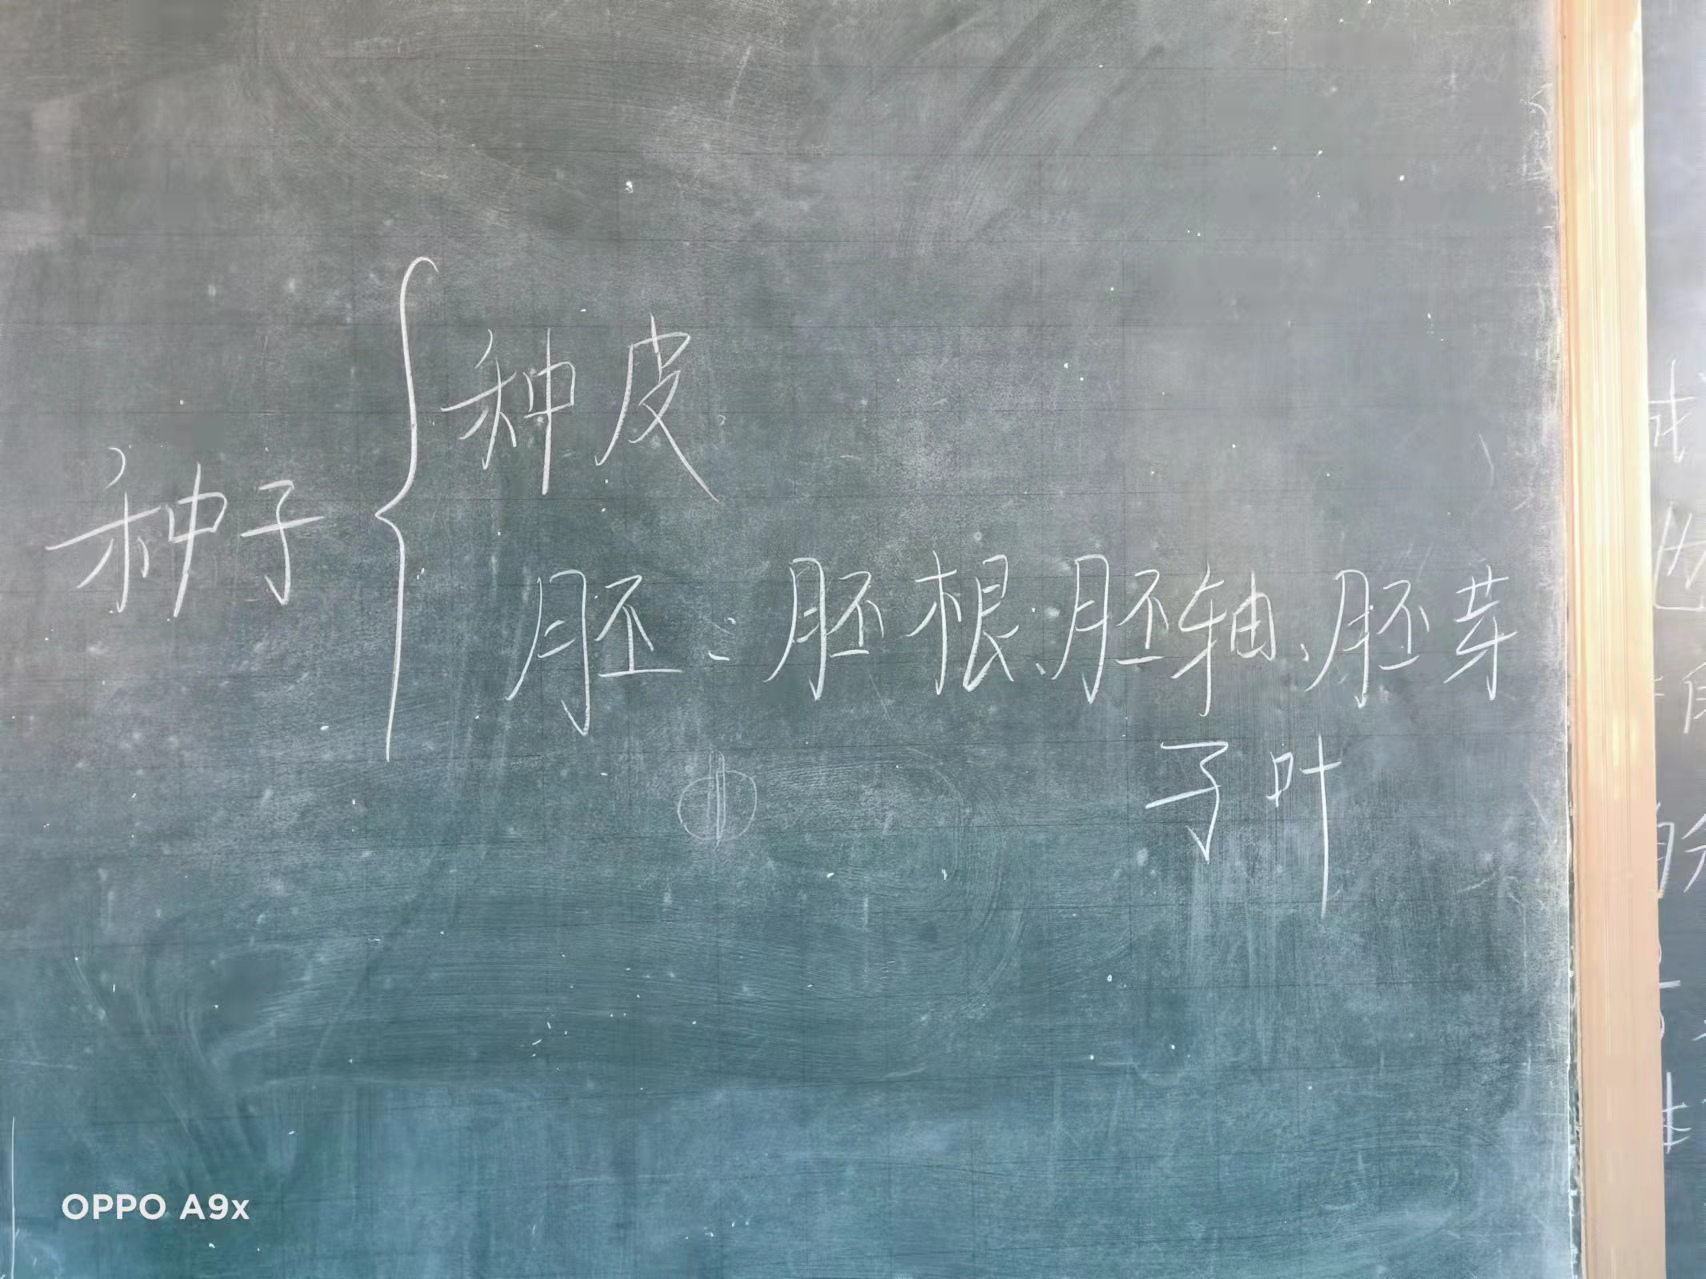 种子
种皮
胚：胚根、胚轴、胚芽
子叶
OPPO A9x